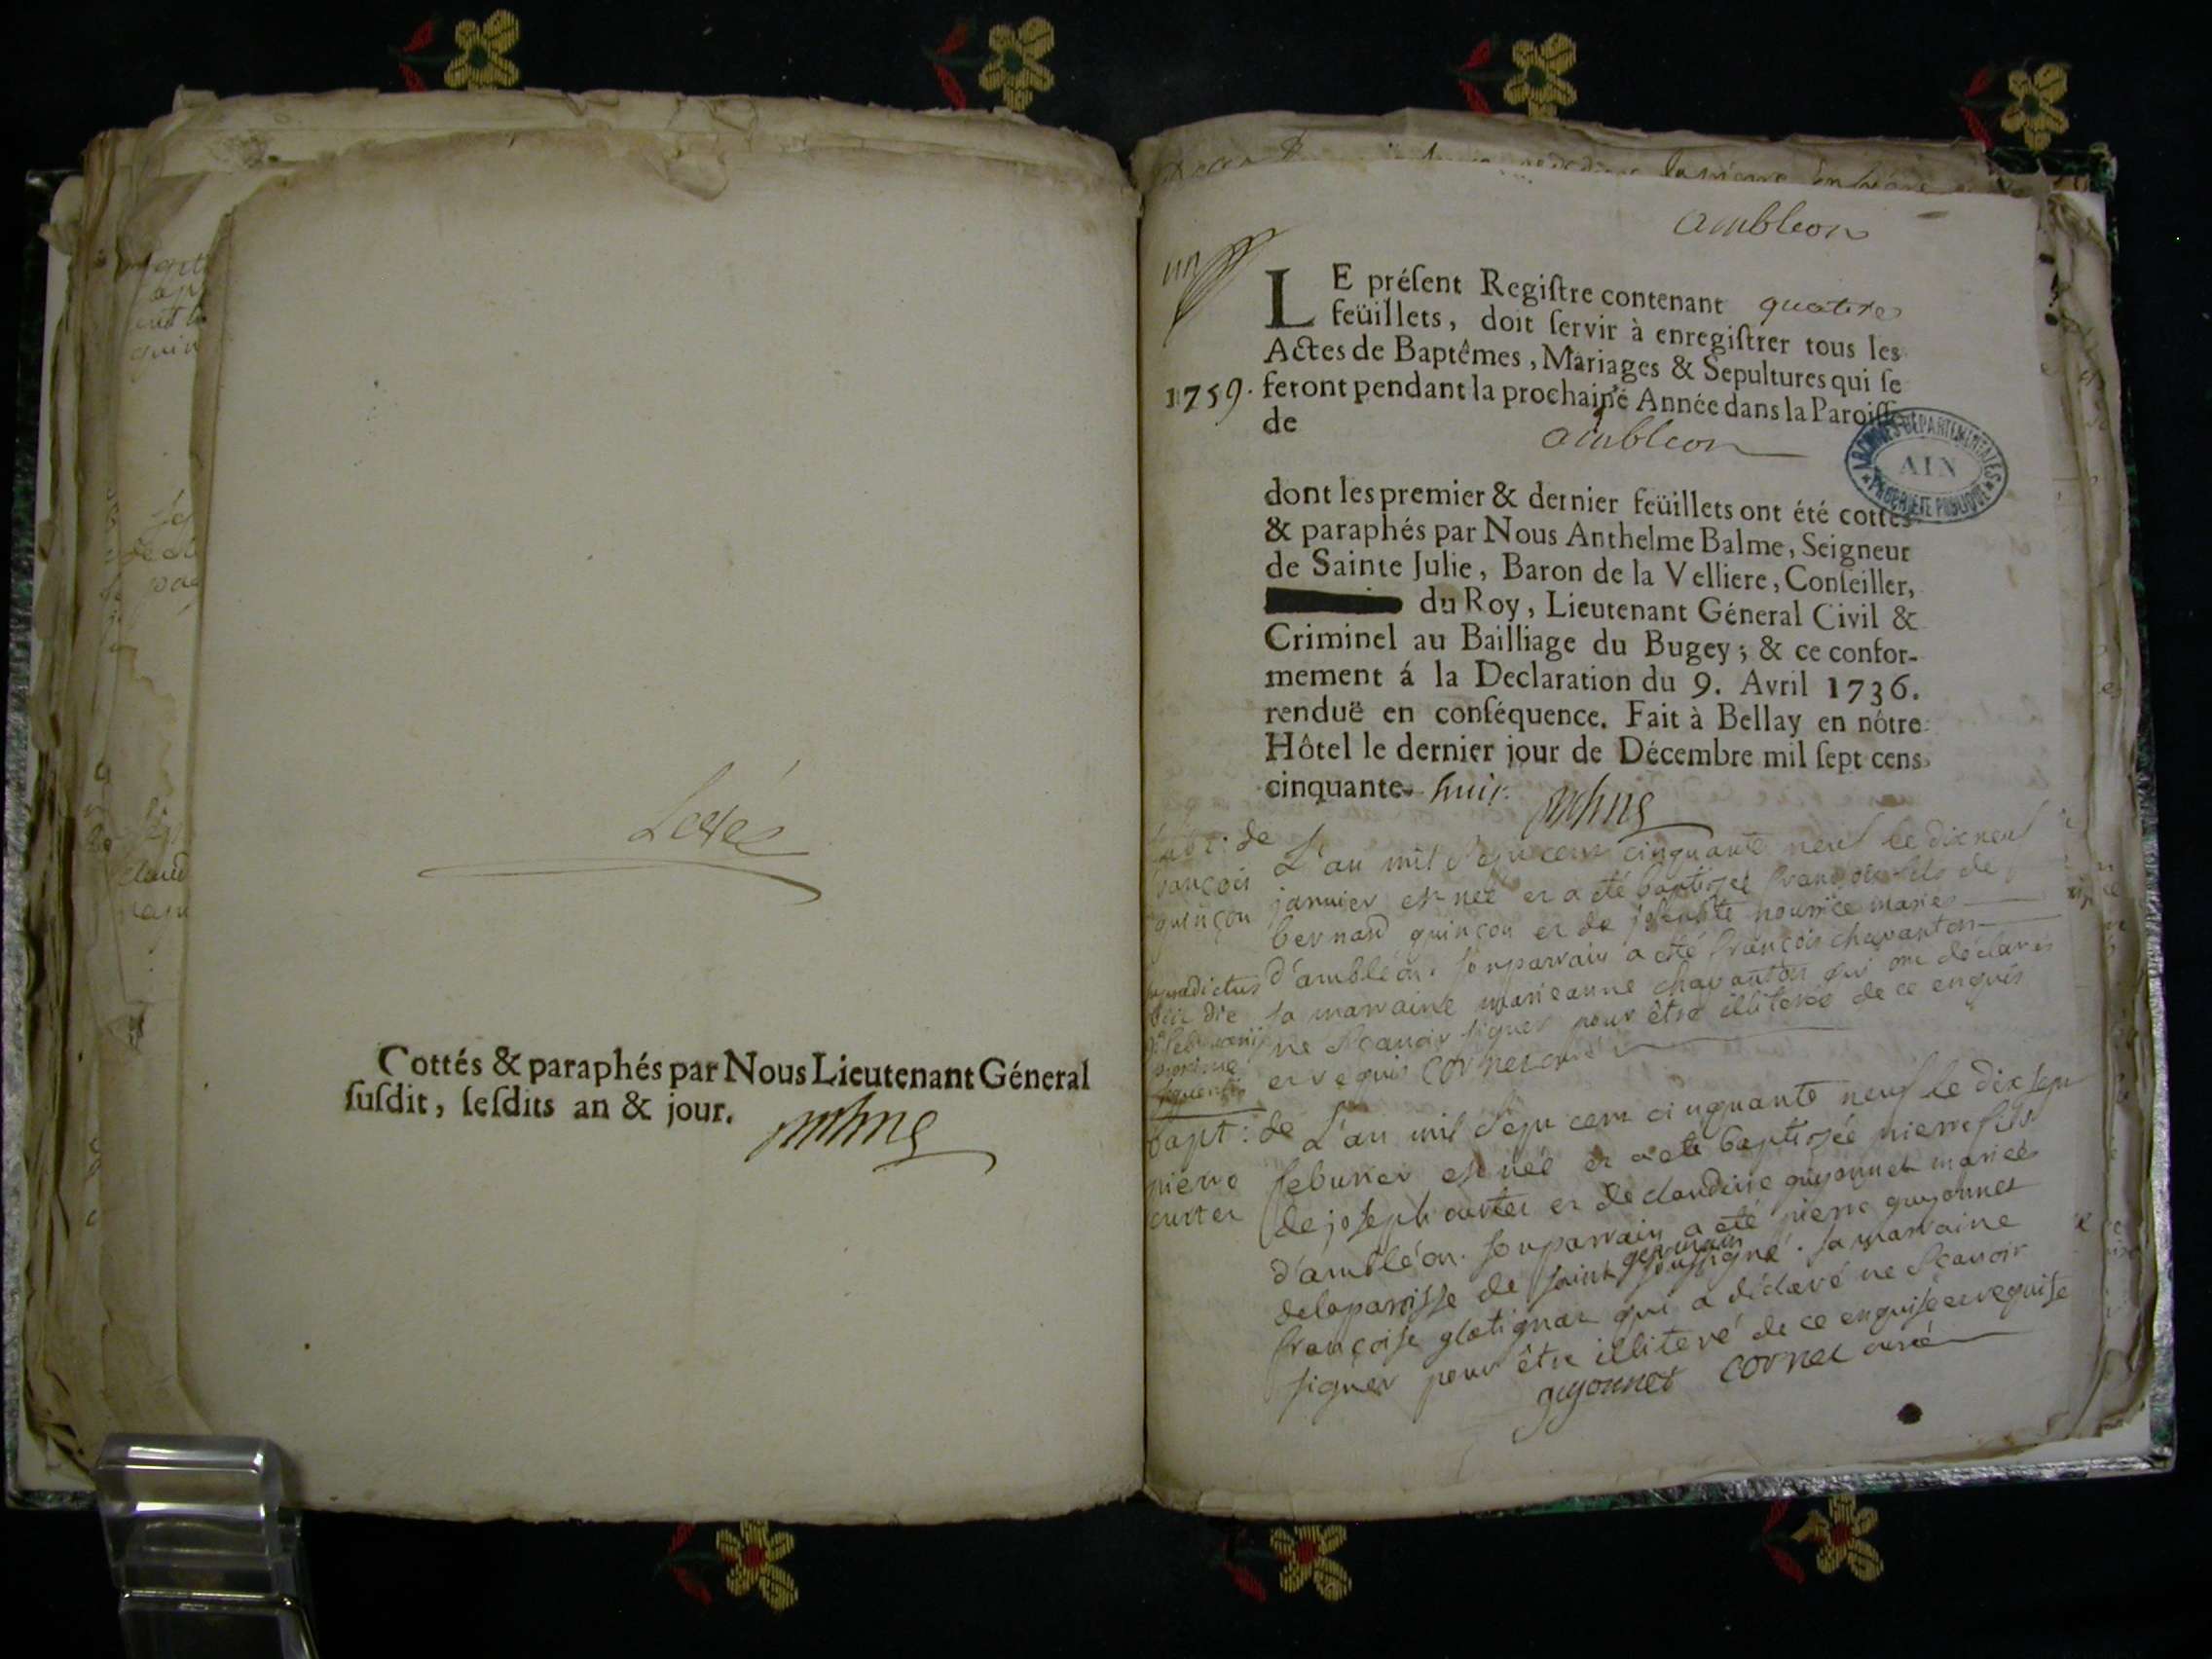 Cottés & paraphés par Nous Lieutenant Géneral
susdit, lesdits an & jour.
ambleon
un
LE présent Registre contenant quatre
feüillets, doit servir à enregistrer tous les
Actes de Baptêmes, Mariages & Sepultures qui se
1759. feront pendant la prochaine Année dans la Paroisse
de ambleon
ARCHIVES DEPARTEMENTALES
AIN
PROPRIETE PUBLIQUE
dont les premier & dernier feüillets ont été cottés
& paraphés par Nous Anthelme Balme, Seigneur
de Sainte Julie, Baron de la Velliere, Conseiller,
du Roy, Lieutenant Géneral Civil &
Criminel au Bailliage du Bugey; & ce confor-
mement á la Declaration du 9. Avril 1736.
renduë en conséquence. Fait à Bellay en nôtre
Hôtel le dernier jour de Décembre mil sept cens
cinquante huit.
bapt: de
françois
guinçon
L'an mil sept cent cinquante neuf le dix neuf
janvier est neé et a été baptisee françois fils de
bernard guinçon et de nourrice mariés
d'ambléon. son parrain a été françois chavanton
sa marraine marieanne chavanton qui ont déclarés
ne scavoir signer pour être illiterée de ce enquis
et requis cornet curé
bapt: de
pierre
curtet
L'an mil sept cent cinquante neuf le dix sept
febvrier est neé et a eté baptisée pierre fils
de joseph curtet et de claudine guyonnet mariés
d'ambléon. son parrain a eté pierre guyonnet
de la parroisse de saint germain soussigné. sa marraine
françoise glatignat qui a déclaré ne scavoir
signer pour être illiteré de ce enquise et requise
guyonnet cornet curé